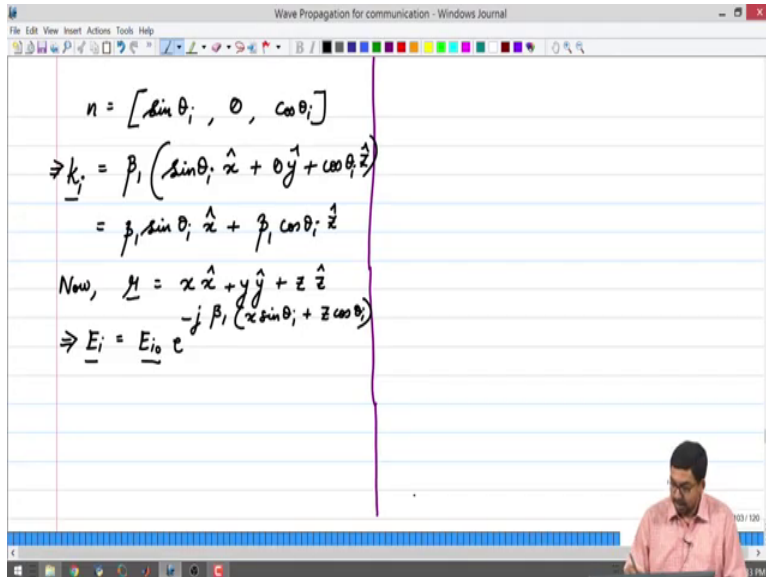 Wave Propagation for communication - Windows Journal
File Edit View Insert Actions Tools Help
n = [sin θi , 0 , cos θi]
⇒ ki = β1 (sin θi x̂ + 0ŷ + cos θi ẑ)
= β1 sin θi x̂ + β1 cos θi ẑ
Now, r = x x̂ + y ŷ + z ẑ
⇒ Ei = Ei0 e^{-j β1 (x sin θi + z cos θi)}
103 / 120